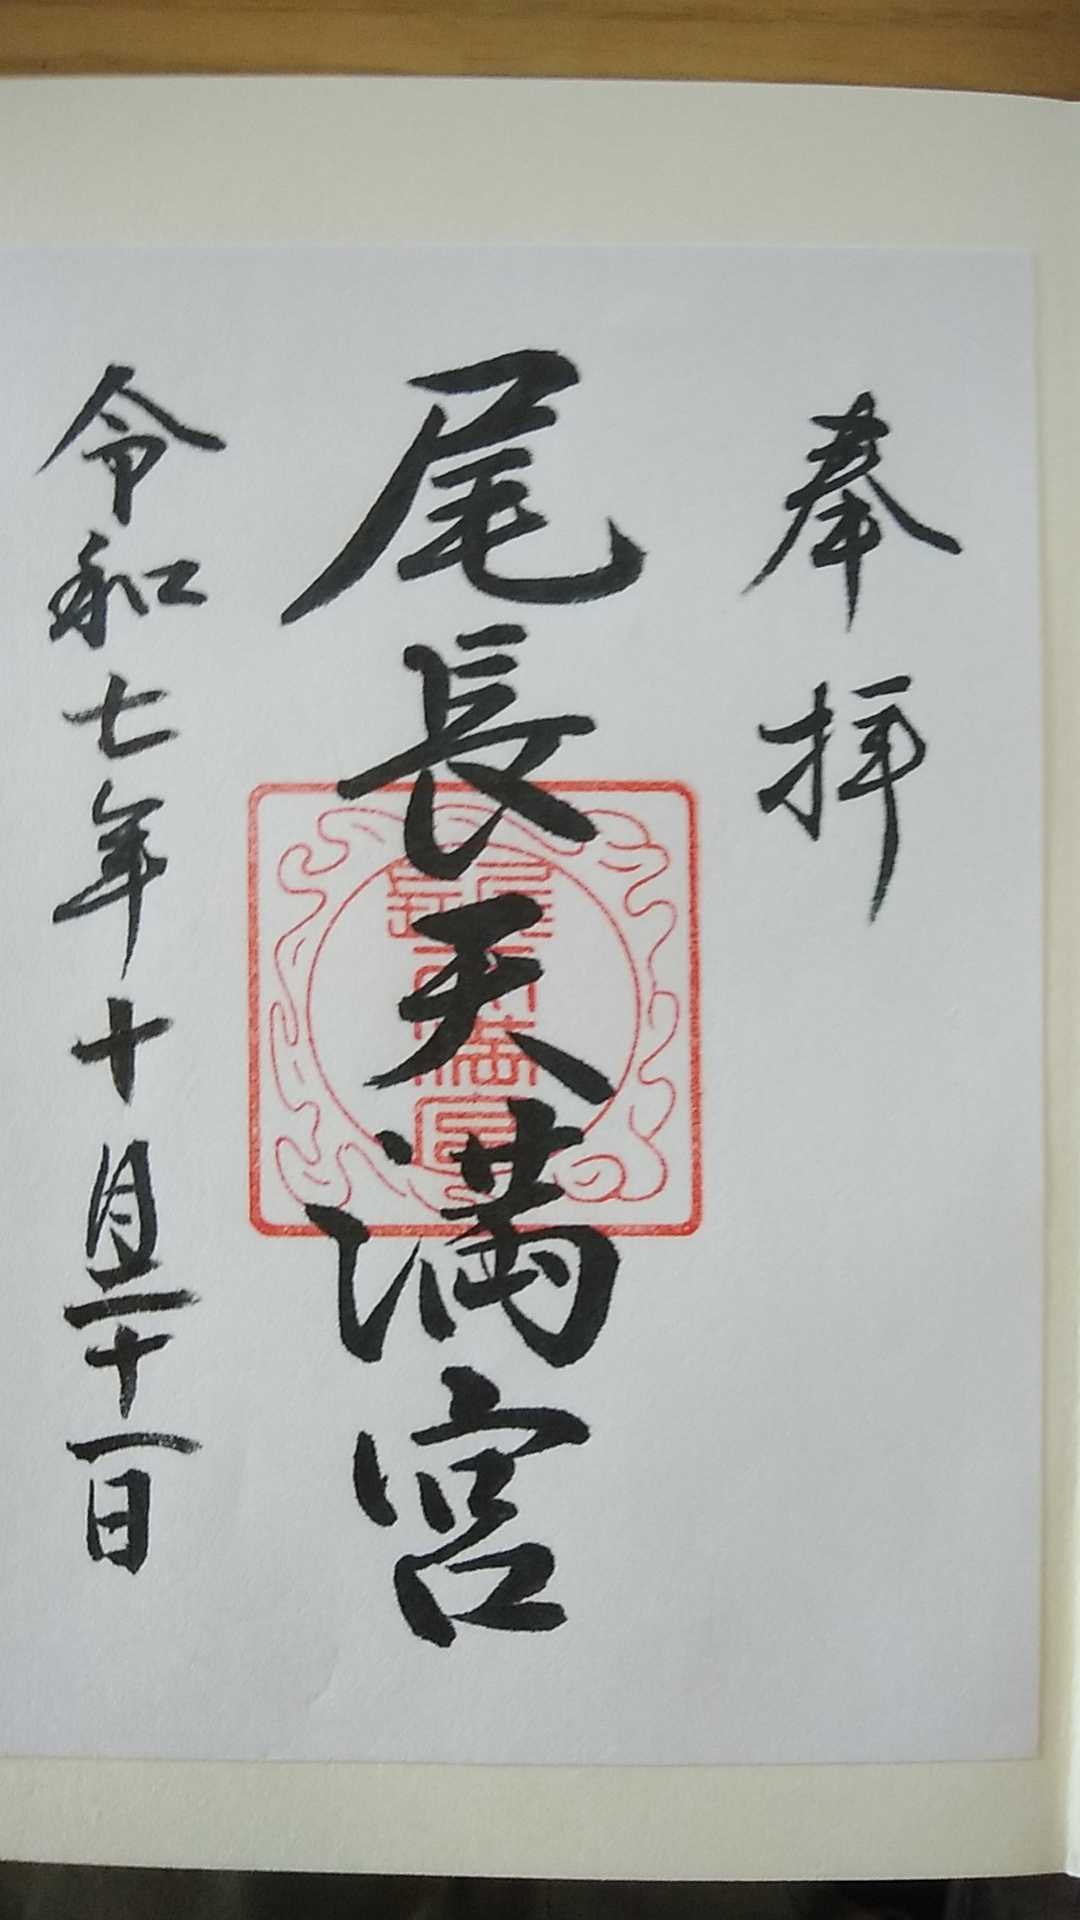 奉拝
尾長天満宮
令和七年十月二十一日